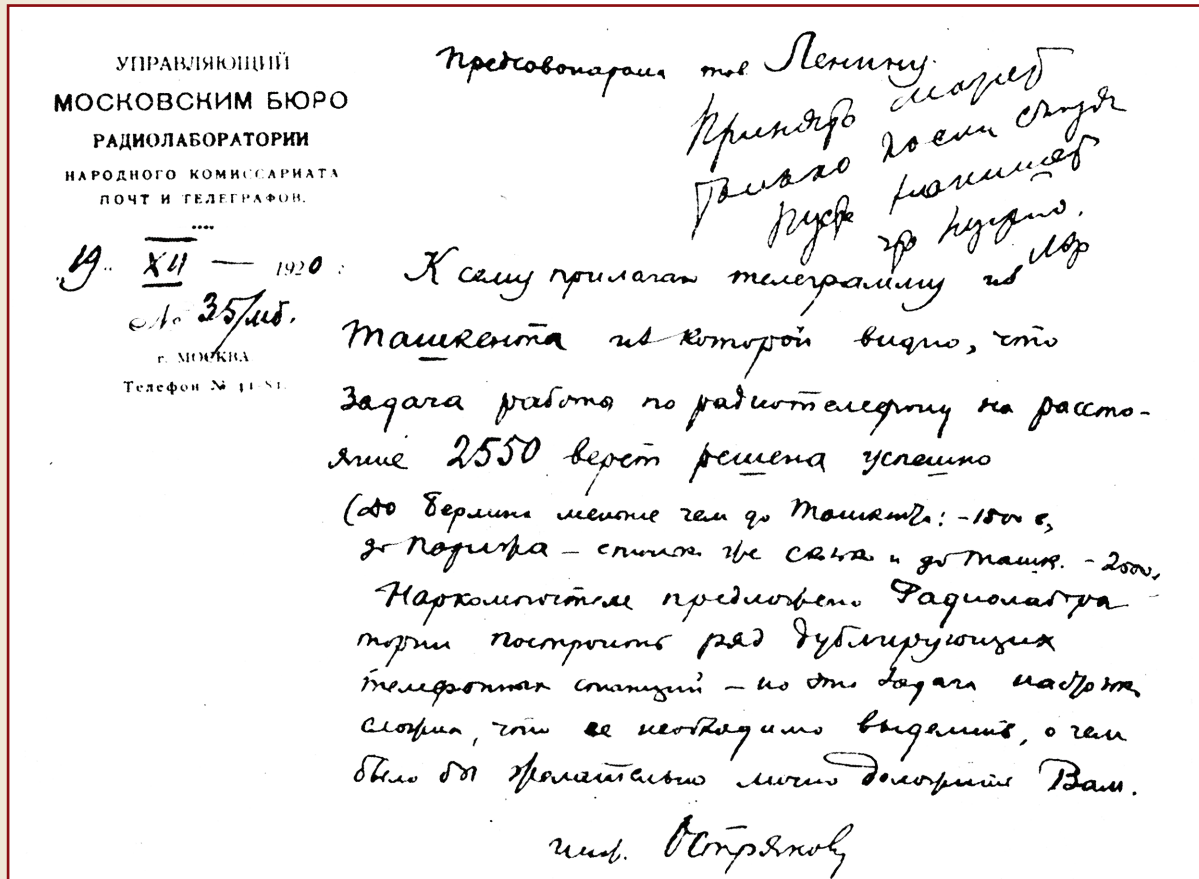 УПРАВЛЯЮЩИЙ
МОСКОВСКИМ БЮРО
РАДИОЛАБОРАТОРИИ
НАРОДНОГО КОМИССАРИАТА
ПОЧТ И ТЕЛЕГРАФОВ.
"19" XII — 1920 г.
№ 35/мб.
г. МОСКВА
Телефон № 41-81.
Предсовнаркома тов Ленину.
Принять может
только после съезда
Пусть напишет
что нужно.
К сему прилагаю телеграмму из
Ташкента из которой видно, что
задача работы по радиотелефону на рассто-
яние 2550 верст решена успешно
(до Берлина меньше чем до Ташкента: -1500 в,
до Парижа – столько же сколько и до Ташк. - 2500,
Наркомпочтеле предложено Радиолабора
тории построить ряд дублирующих
телефонных станций – но эта задача настолько
сложна, что ее необходимо выделить, о чем
было бы желательно лично доложить Вам.
инж. Остряков